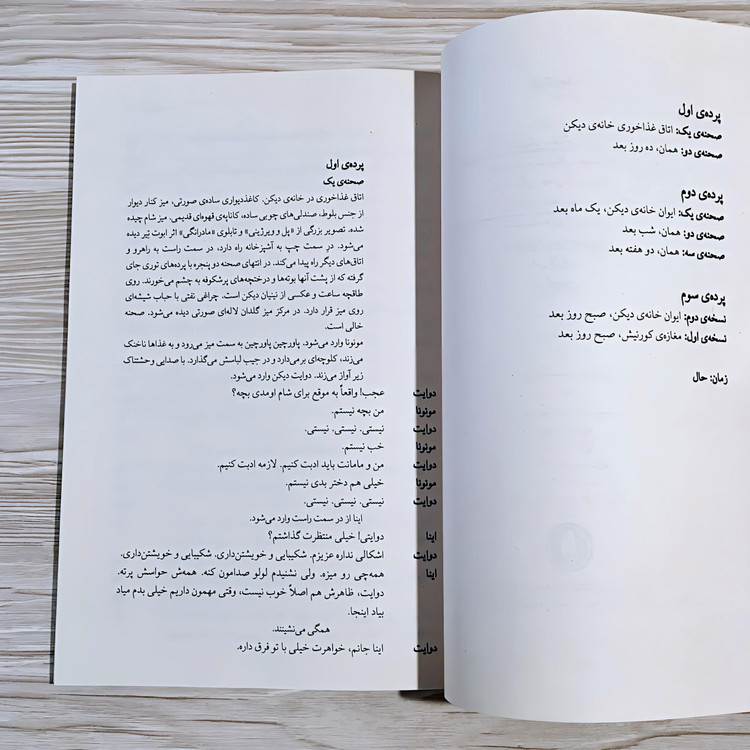 پرده‌ی اول
صحنه‌ی یک: اتاق غذاخوری خانه‌ی دیکن
صحنه‌ی دو: همان، ده روز بعد
پرده‌ی دوم
صحنه‌ی یک: ایوان خانه‌ی دیکن، یک ماه بعد
صحنه‌ی دو: همان، شب بعد
صحنه‌ی سه: همان، دو هفته بعد
پرده‌ی سوم
نسخه‌ی دوم: ایوان خانه‌ی دیکن، صبح روز بعد
نسخه‌ی اول: مغازه‌ی کورنیش، صبح روز بعد
زمان: حال
پرده‌ی اول
صحنه‌ی یک
اتاق غذاخوری در خانه‌ی دیکن. کاغذدیواری ساده‌ی صورتی، میز کنار دیوار
از جنس بلوط، صندلی‌های چوبی ساده، کاناپه‌ی قهوه‌ای قدیمی. میز شام چیده
شده. تصویر بزرگی از «پل و ویرژینی» و تابلوی «مادرانگی» اثر ابوت تِیر دیده
می‌شود. درِ سمت چپ به آشپزخانه راه دارد، در سمت راست به راهرو و
اتاق‌های دیگر راه پیدا می‌کند. در انتهای صحنه دو پنجره با پرده‌های توری جای
گرفته که از پشت آنها بوته‌ها و درختچه‌های پرشکوفه به چشم می‌خورند. روی
طاقچه ساعت و عکسی از نینیان دیکن است. چراغی نفتی با حباب شیشه‌ای
روی میز قرار دارد. در مرکز میز گلدان لاله‌ای صورتی دیده می‌شود. صحنه
خالی است.
مونونا وارد می‌شود. پاورچین پاورچین به سمت میز می‌رود و به غذاها ناخنک
می‌زند، کلوچه‌ای برمی‌دارد و در جیب لباسش می‌گذارد. با صدایی وحشتناک
زیر آواز می‌زند. دوایت دیکن وارد می‌شود.
دوایت عجب! واقعاً به موقع برای شام اومدی بچه؟
مونونا من بچه نیستم.
دوایت نیستی. نیستی. نیستی.
مونونا خب نیستم.
دوایت من و مامانت باید ادبت کنیم. لازمه ادبت کنیم.
مونونا خیلی هم دختر بدی نیستم.
دوایت نیستی. نیستی. نیستی.
اینا از در سمت راست وارد می‌شود.
اینا دوایتی! خیلی منتظرت گذاشتم؟
دوایت اشکالی نداره عزیزم. شکیبایی و خویشتن‌داری. شکیبایی و خویشتن‌داری.
اینا همه‌چی رو میزه. ولی نشنیدم لولو صدامون کنه. همه‌ش حواسش پرته.
دوایت، ظاهرش هم اصلاً خوب نیست، وقتی مهمون داریم خیلی بدم میاد
بیاد اینجا.
همگی می‌نشینند.
دوایت اینا جانم، خواهرت خیلی با تو فرق داره.